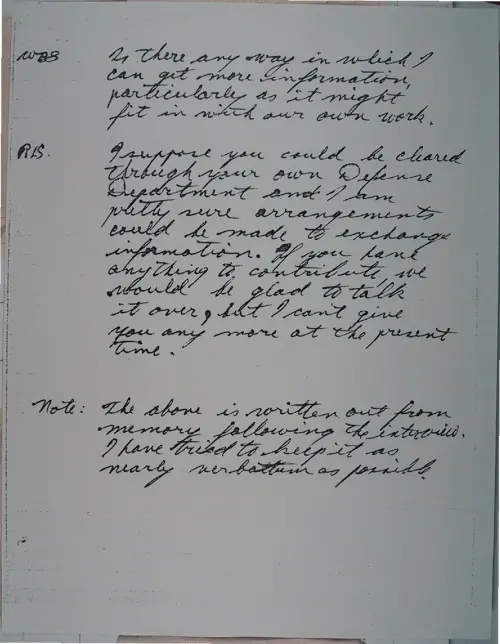 WBS Is there any way in which I
can get more information,
particularly as it might
fit in with our own work.
RIS. I suppose you could be cleared
through your own Defense
Department and I am
pretty sure arrangements
could be made to exchange
information. If you have
anything to contribute we
would be glad to talk
it over, but I can't give
you any more at the present
time.
Note: The above is written out from
memory following the interview.
I have tried to keep it as
nearly verbattum as possible.